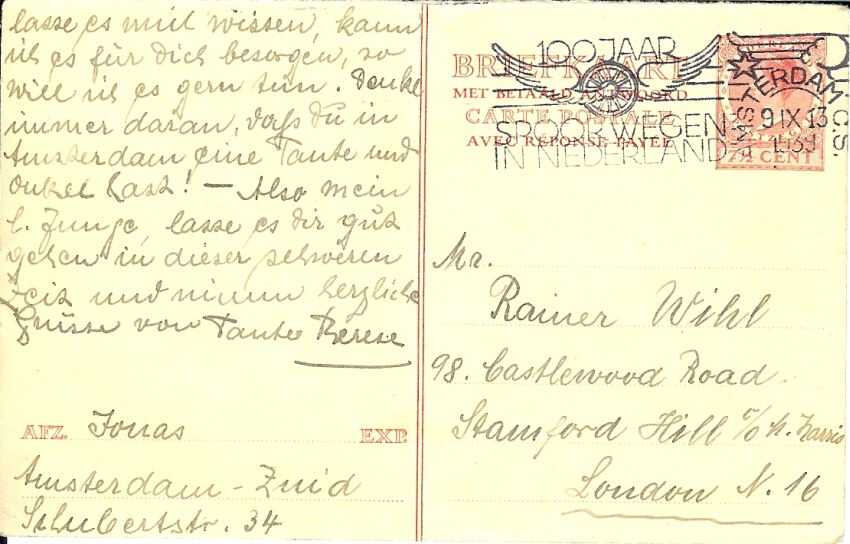 lasse es mich wissen, kann
ich es für Dich besorgen, so
will ich es gern tun. Denke
immer daran, daß Du in
Amsterdam eine Tante und
Onkel hast! — Also mein
l. Junge, lasse es dir gut
gehen in dieser schweren
Zeit und nimm herzliche
Grüsse von Tante Therese
AFZ. Jonas EXP.
Amsterdam - Zuid
Schubertstr. 34
BRIEFKAART
MET BETAALD ANTWOORD
CARTE POSTALE
AVEC RÉPONSE PAYÉE
7½ CENT
100 JAAR
SPOORWEGEN
IN NEDERLAND
AMSTERDAM C.S.
9 IX 13
1939
Mr.
Rainer Wihl
98. Castlewood Road
Stamford Hill c/o h. Harris
London N. 16